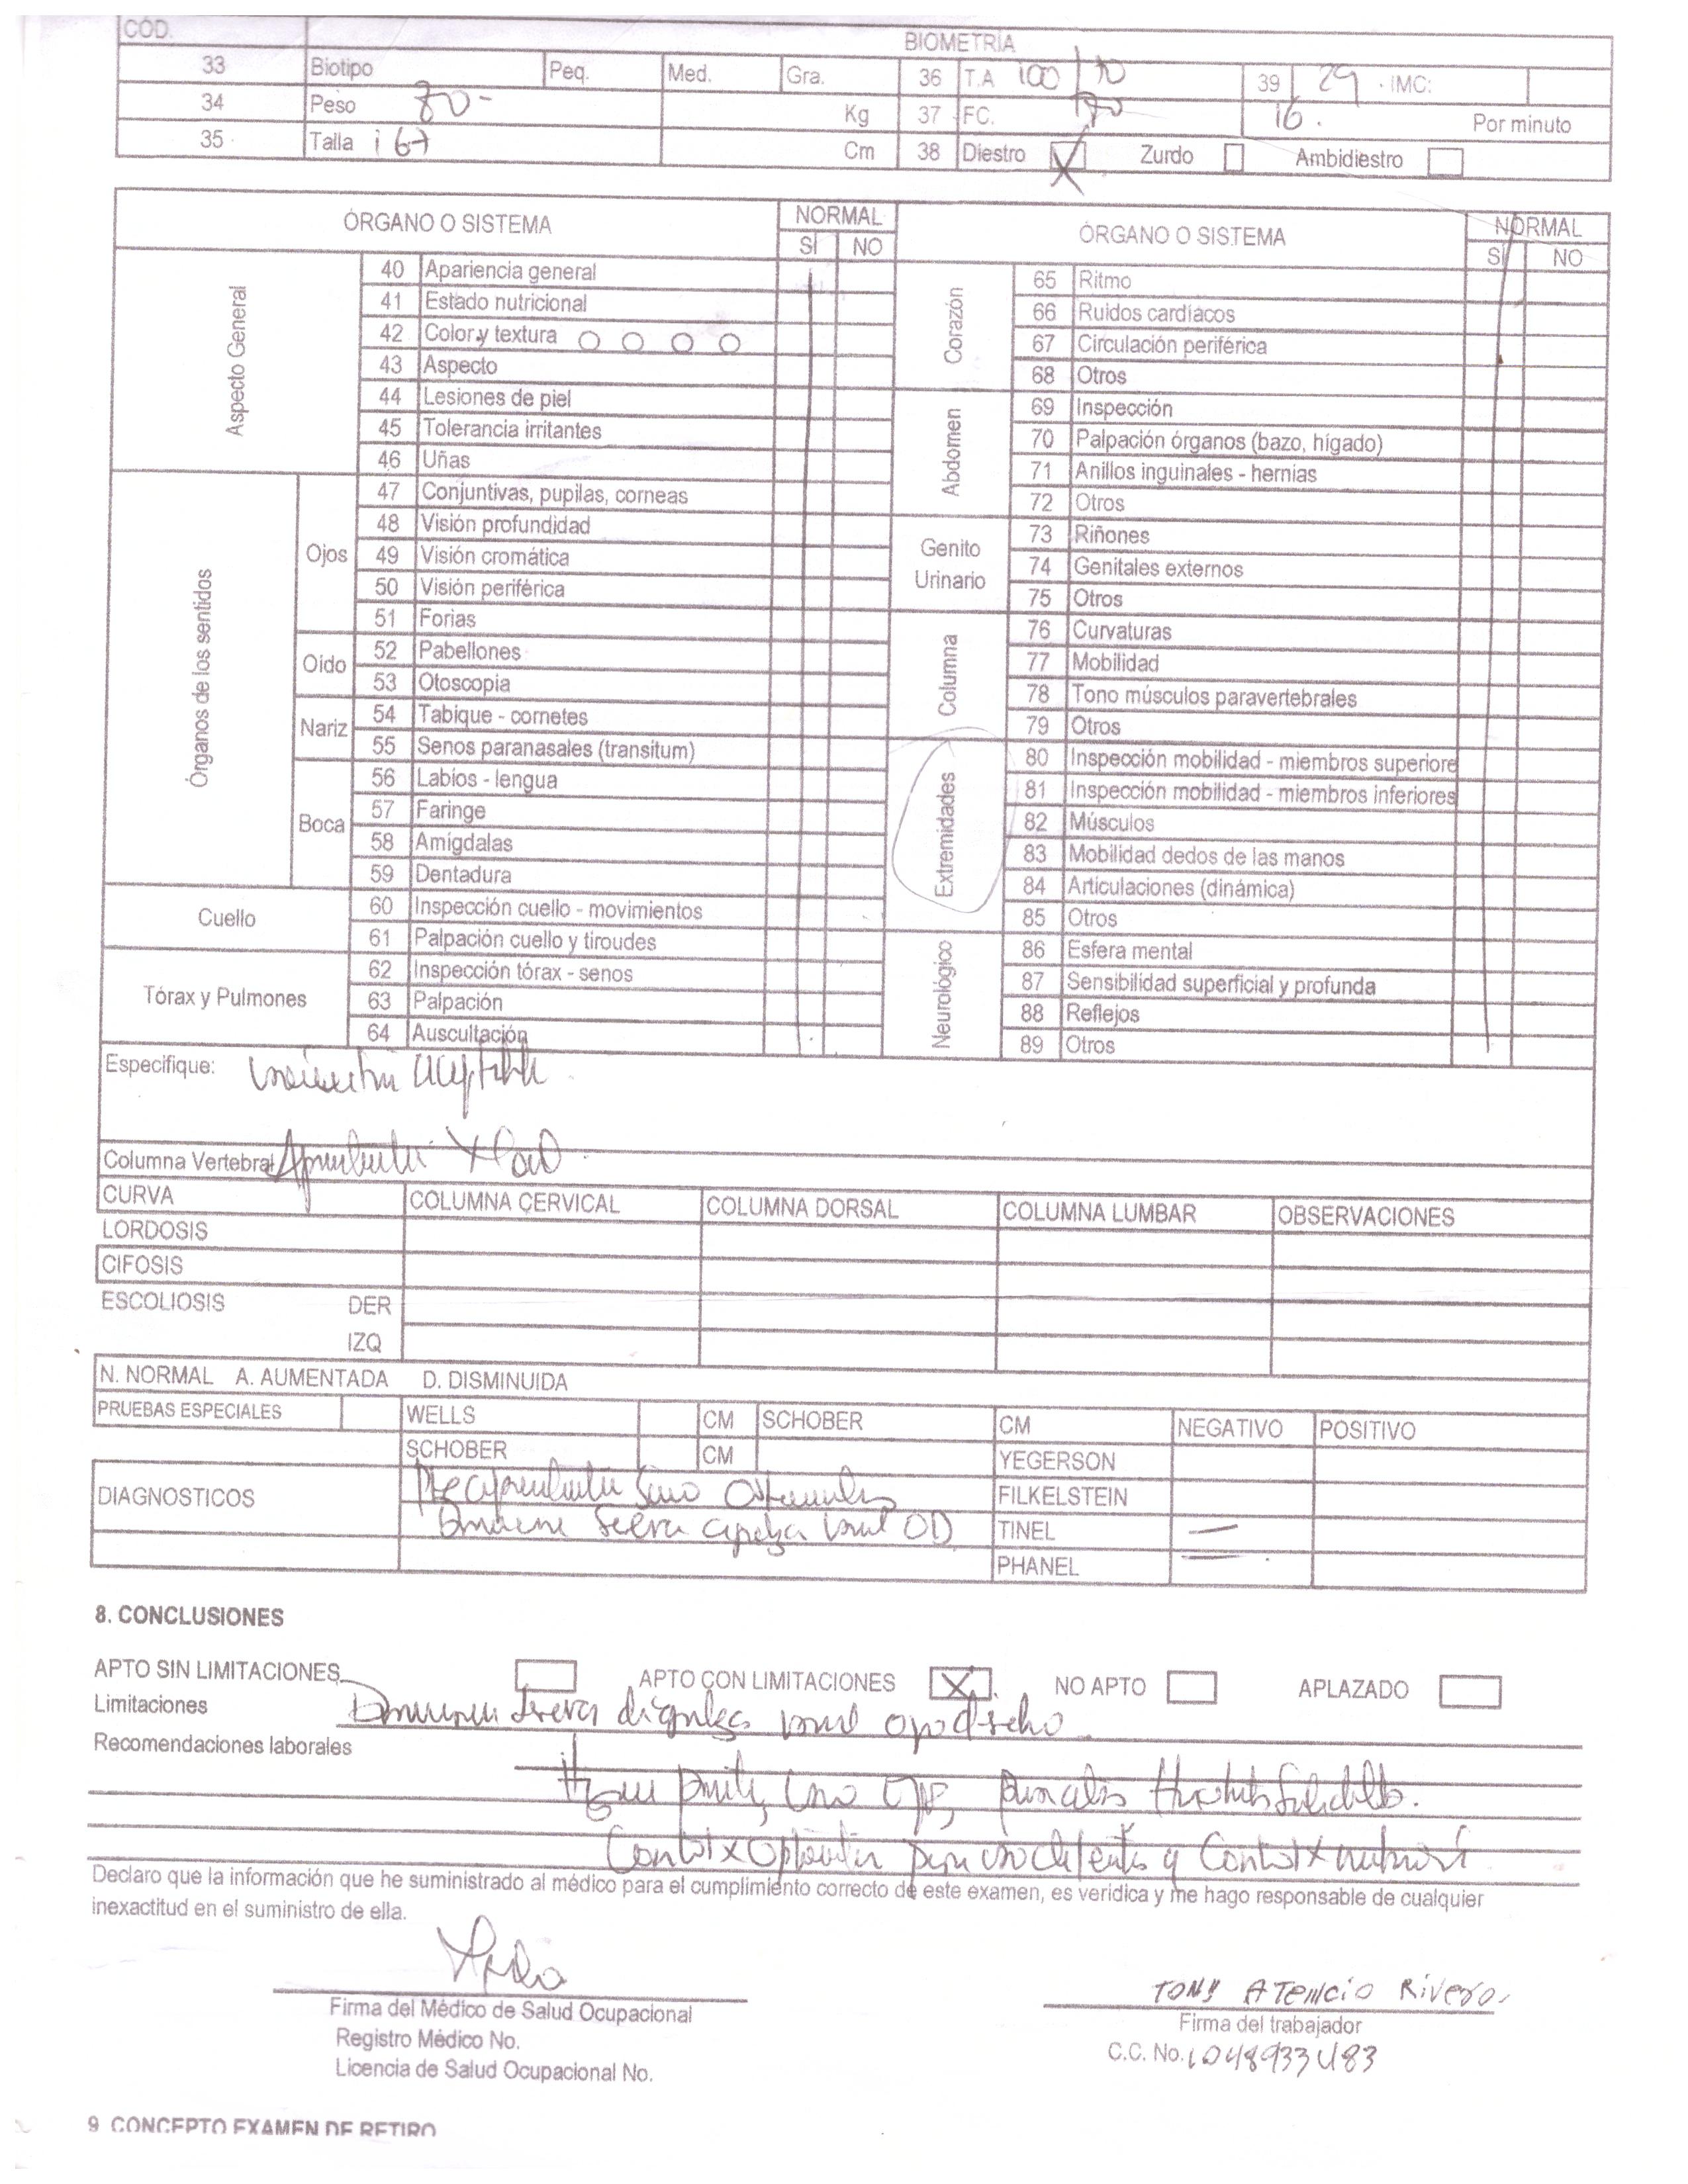 CÓD.
BIOMETRÍA
33 Biotipo Peq. Med. Gra. 36 T.A 100/70 39 29 IMC:
34 Peso 80- Kg 37 FC. 70 16. Por minuto
35 Talla 167 Cm 38 Diestro X Zurdo Ambidiestro
ÓRGANO O SISTEMA NORMAL ÓRGANO O SISTEMA NORMAL
SÍ NO SÍ NO
Aspecto General
40 Apariencia general
41 Estado nutricional
42 Color y textura O O O O
43 Aspecto
44 Lesiones de piel
45 Tolerancia irritantes
46 Uñas
Órganos de los sentidos
Ojos
47 Conjuntivas, pupilas, corneas
48 Visión profundidad
49 Visión cromática
50 Visión periférica
51 Forias
Oido
52 Pabellones
53 Otoscopia
Nariz
54 Tabique - cornetes
55 Senos paranasales (transitum)
Boca
56 Labios - lengua
57 Faringe
58 Amígdalas
59 Dentadura
Cuello
60 Inspección cuello - movimientos
61 Palpación cuello y tiroudes
Tórax y Pulmones
62 Inspección tórax - senos
63 Palpación
64 Auscultación
Corazón
65 Ritmo
66 Ruidos cardíacos
67 Circulación periférica
68 Otros
Abdomen
69 Inspección
70 Palpación órganos (bazo, hígado)
71 Anillos inguinales - hernias
72 Otros
Genito Urinario
73 Riñones
74 Genitales externos
75 Otros
Columna
76 Curvaturas
77 Mobilidad
78 Tono músculos paravertebrales
79 Otros
Extremidades
80 Inspección mobilidad - miembros superiore
81 Inspección mobilidad - miembros inferiores
82 Músculos
83 Mobilidad dedos de las manos
84 Articulaciones (dinámica)
85 Otros
Neurológico
86 Esfera mental
87 Sensibilidad superficial y profunda
88 Reflejos
89 Otros
Especifique:
Columna Vertebral
CURVA COLUMNA CERVICAL COLUMNA DORSAL COLUMNA LUMBAR OBSERVACIONES
LORDOSIS
CIFOSIS
ESCOLIOSIS DER
IZQ
N. NORMAL A. AUMENTADA D. DISMINUIDA
PRUEBAS ESPECIALES WELLS CM SCHOBER CM NEGATIVO POSITIVO
SCHOBER CM YEGERSON
DIAGNOSTICOS FILKELSTEIN
OD TINEL —
PHANEL —
8. CONCLUSIONES
APTO SIN LIMITACIONES APTO CON LIMITACIONES X NO APTO APLAZADO
Limitaciones
Recomendaciones laborales
Declaro que la información que he suministrado al médico para el cumplimiento correcto de este examen, es veridica y me hago responsable de cualquier
inexactitud en el suministro de ella.
Firma del Médico de Salud Ocupacional
Registro Médico No.
Licencia de Salud Ocupacional No.
TONY ATENCIO RIVERO
Firma del trabajador
C.C. No. 1048933483
9 CONCEPTO EXAMEN DE RETIRO